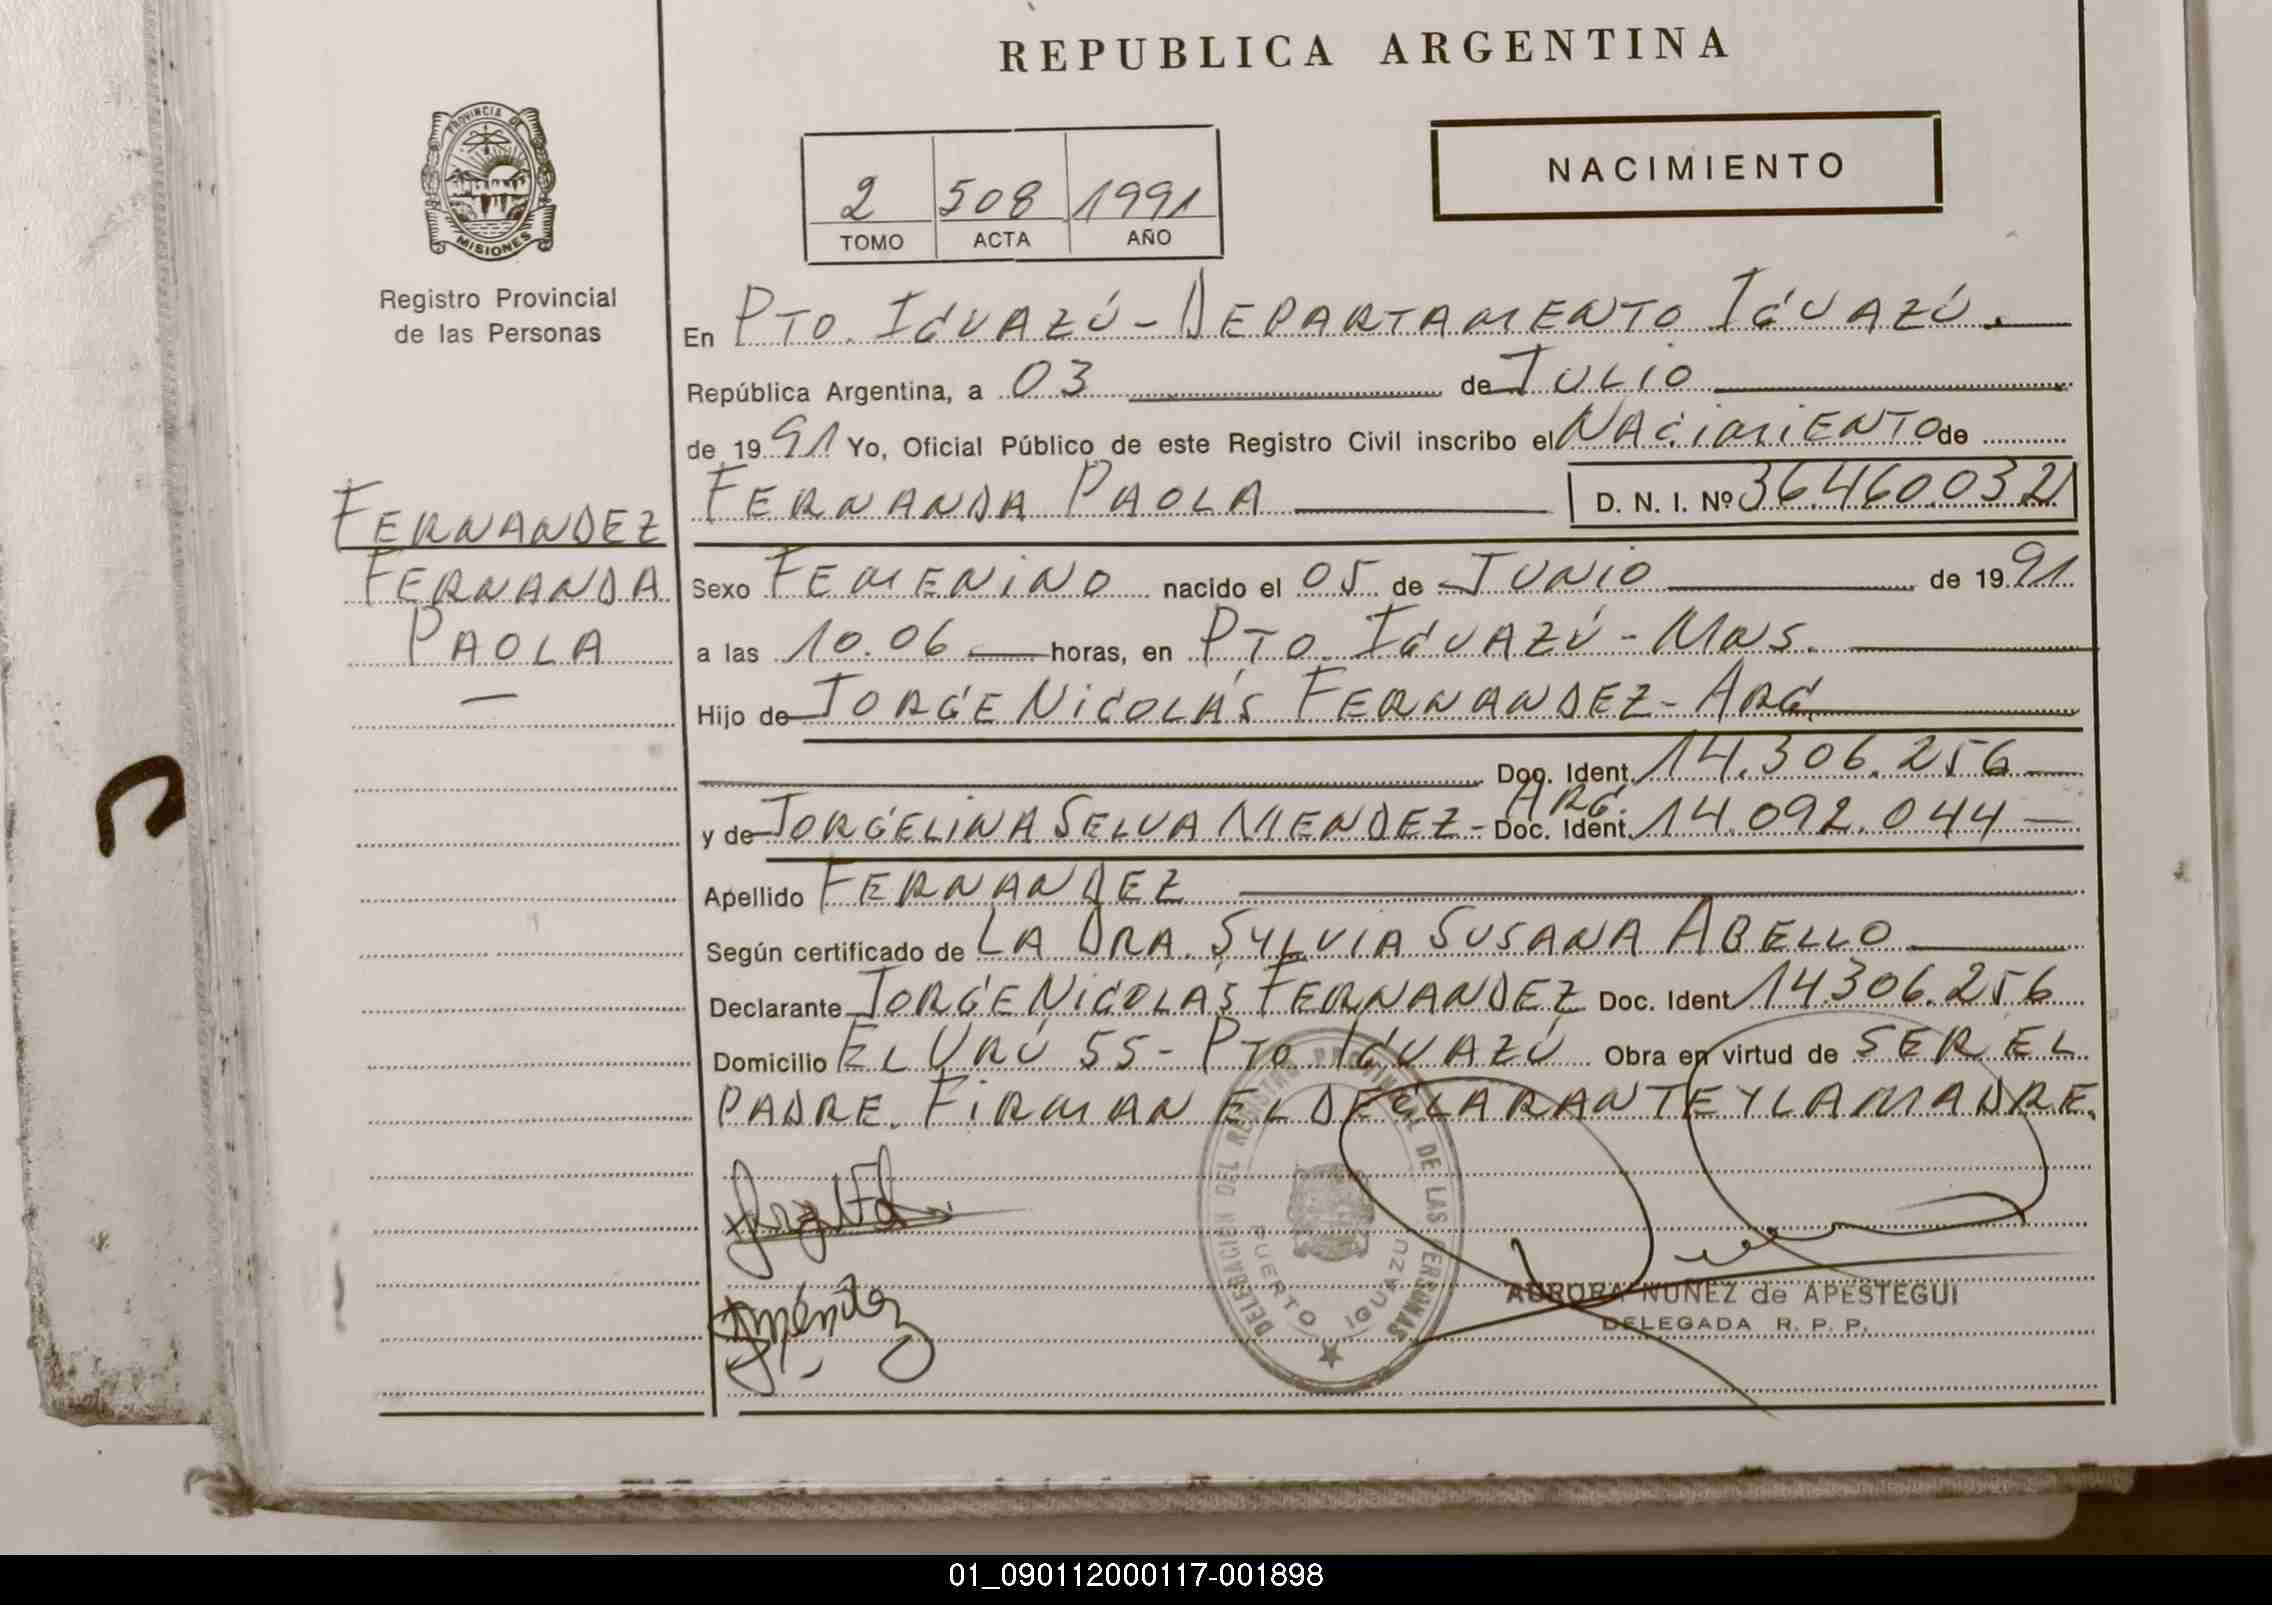 REPUBLICA ARGENTINA
PROVINCIA DE
MISIONES
Registro Provincial
de las Personas
NACIMIENTO
2 508 1991
TOMO ACTA AÑO
En PTO. IGUAZÚ - DEPARTAMENTO IGUAZÚ.
República Argentina, a 03 de JULIO
de 1991 Yo, Oficial Público de este Registro Civil inscribo el NACIMIENTO de
FERNANDA PAOLA D. N. I. Nº 36.460.032
FERNANDEZ
FERNANDA
PAOLA
Sexo FEMENINO nacido el 05 de JUNIO de 1991
a las 10.06 horas, en PTO. IGUAZÚ - Mns.
Hijo de JORGE NICOLÁS FERNANDEZ - ARG.
Doc. Ident. 14.306.256
y de JORGELINA SELVA MENDEZ - ARG. Doc. Ident. 14.092.044
Apellido FERNANDEZ
Según certificado de LA DRA. SYLVIA SUSANA ABELLO
Declarante JORGE NICOLAS FERNANDEZ Doc. Ident 14.306.256
Domicilio EL URÚ 55 - PTO. IGUAZÚ Obra en virtud de SER EL
PADRE. FIRMAN EL DECLARANTE Y LA MADRE.
DELEGACION DEL REGISTRO PROVINCIAL DE LAS PERSONAS
PUERTO IGUAZU
AURORA NUÑEZ de APESTEGUI
DELEGADA R. P. P.
01_090112000117-001898